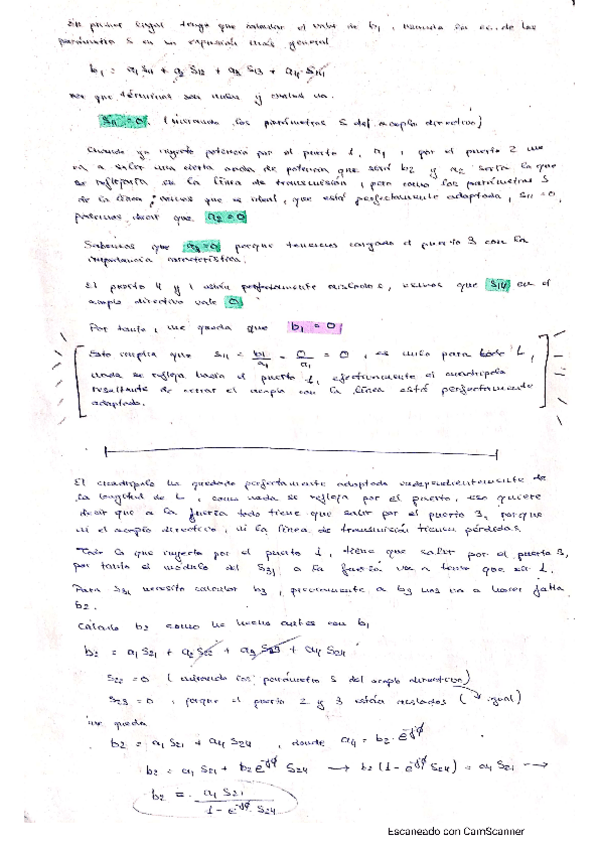 En primer lugar tengo que calcular el valor de b₁, usando las ec. de los
parámetros S en su expresión más general
b₁ = a₁ S₁₁ + a₂ S₁₂ + a₃ S₁₃ + a₄ S₁₄
que términos son nulos y cuales no.
S₁₁ = 0. (mirando los parámetros S del acoplo directivo)
Cuando yo inyecto potencia por el puerto 1, a₁, por el puerto 2 me
va a salir una cierta onda de potencia que será b₂ y a₂ sería la que
se reflejaría en la línea de transmisión, pero como los parámetros S
de la línea, vemos que es ideal, que está perfectamente adaptada, S₁₁ = 0,
podemos decir que a₂ = 0
Sabemos que a₃ = 0 porque tenemos cargado el puerto 3 con la
impedancia característica.
El puerto 4 y 1 están perfectamente aislados, vemos que S₁₄ en el
acoplo directivo vale 0
Por tanto, me queda que b₁ = 0
Esto implica que S₁₁ = b₁/a₁ = 0/a₁ = 0, es nulo para todo L,
nada se refleja hacia el puerto 1, efectivamente el cuadripolo
resultante de cerrar el acoplo con la línea está perfectamente
adaptado.
El cuadripolo ha quedado perfectamente adaptado independientemente de
la longitud de L, como nada se refleja por el puerto, eso quiere
decir que a la fuerza todo tiene que salir por el puerto 3, porque
ni el acoplo directivo, ni la línea de transmisión tienen pérdidas.
Todo lo que inyecto por el puerto 1, tiene que salir por el puerto 3,
por tanto el módulo del S₃₁ a la fuerza va a tener que ser 1.
Para S₃₁ necesito calcular b₃, previamente a b₃ nos va a hacer falta
b₂.
Calculo b₂ como he hecho antes con b₁
b₂ = a₁ S₂₁ + a₂ S₂₂ + a₃ S₂₃ + a₄ S₂₄
S₂₂ = 0 (mirando los parámetro S del acoplo directivo)
S₂₃ = 0, porque el puerto 2 y 3 están aislados (igual)
me queda
b₂ = a₁ S₂₁ + a₄ S₂₄, donde a₄ = b₂ · e^-jφ
b₂ = a₁ S₂₁ + b₂ e^-jφ S₂₄ → b₂ (1 - e^-jφ S₂₄) = a₁ S₂₁ →
b₂ = a₁ S₂₁ / (1 - e^-jφ S₂₄)
Escaneado con CamScanner